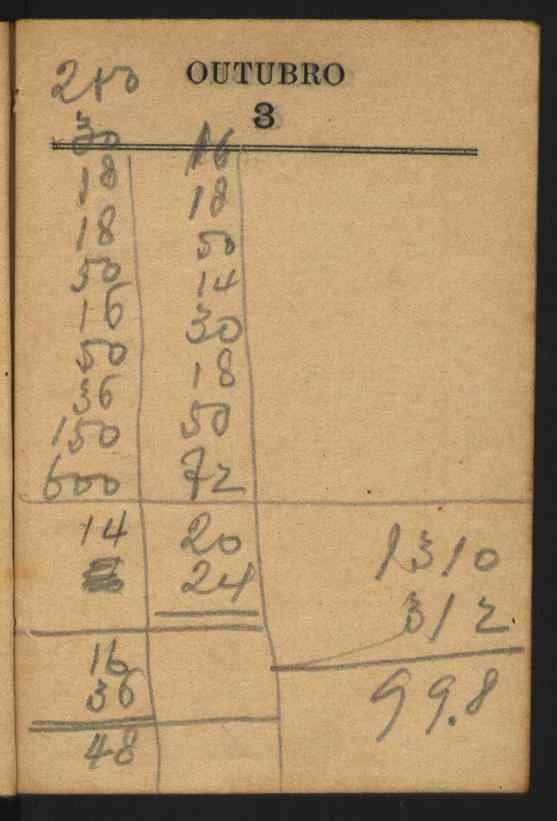 OUTUBRO
3
210
30 16
18 18
18 50
50 14
16 30
50 18
36 50
150 72
600
14 20
24
16
36
48
1310
312
99.8